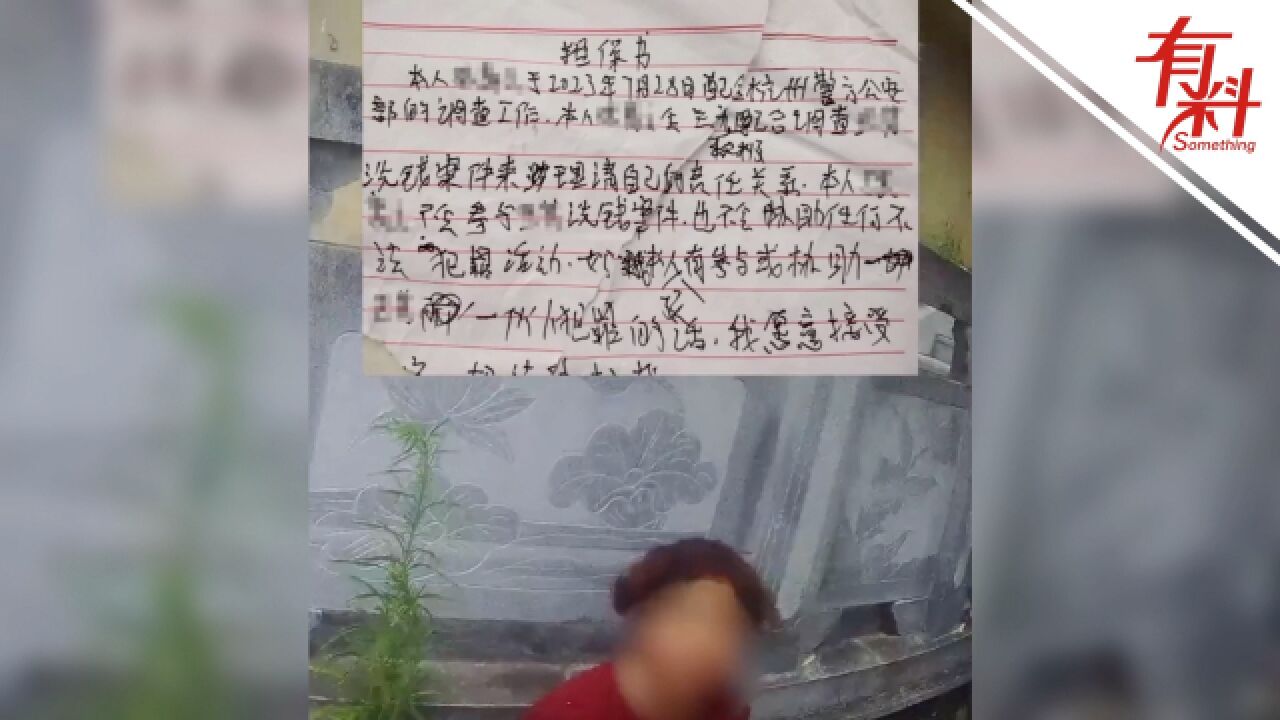 有料
Something
担保书
本人 于2023年7月28日配合杭州警方公安
部的调查工作.本人 会 配合调查
积极
洗钱案件来 理清自己的责任关系.本人
不会参与 洗钱案件.也不会协助任何不
法 犯罪活动.如 本人有参与或协助
一 犯罪的话.我愿意接受